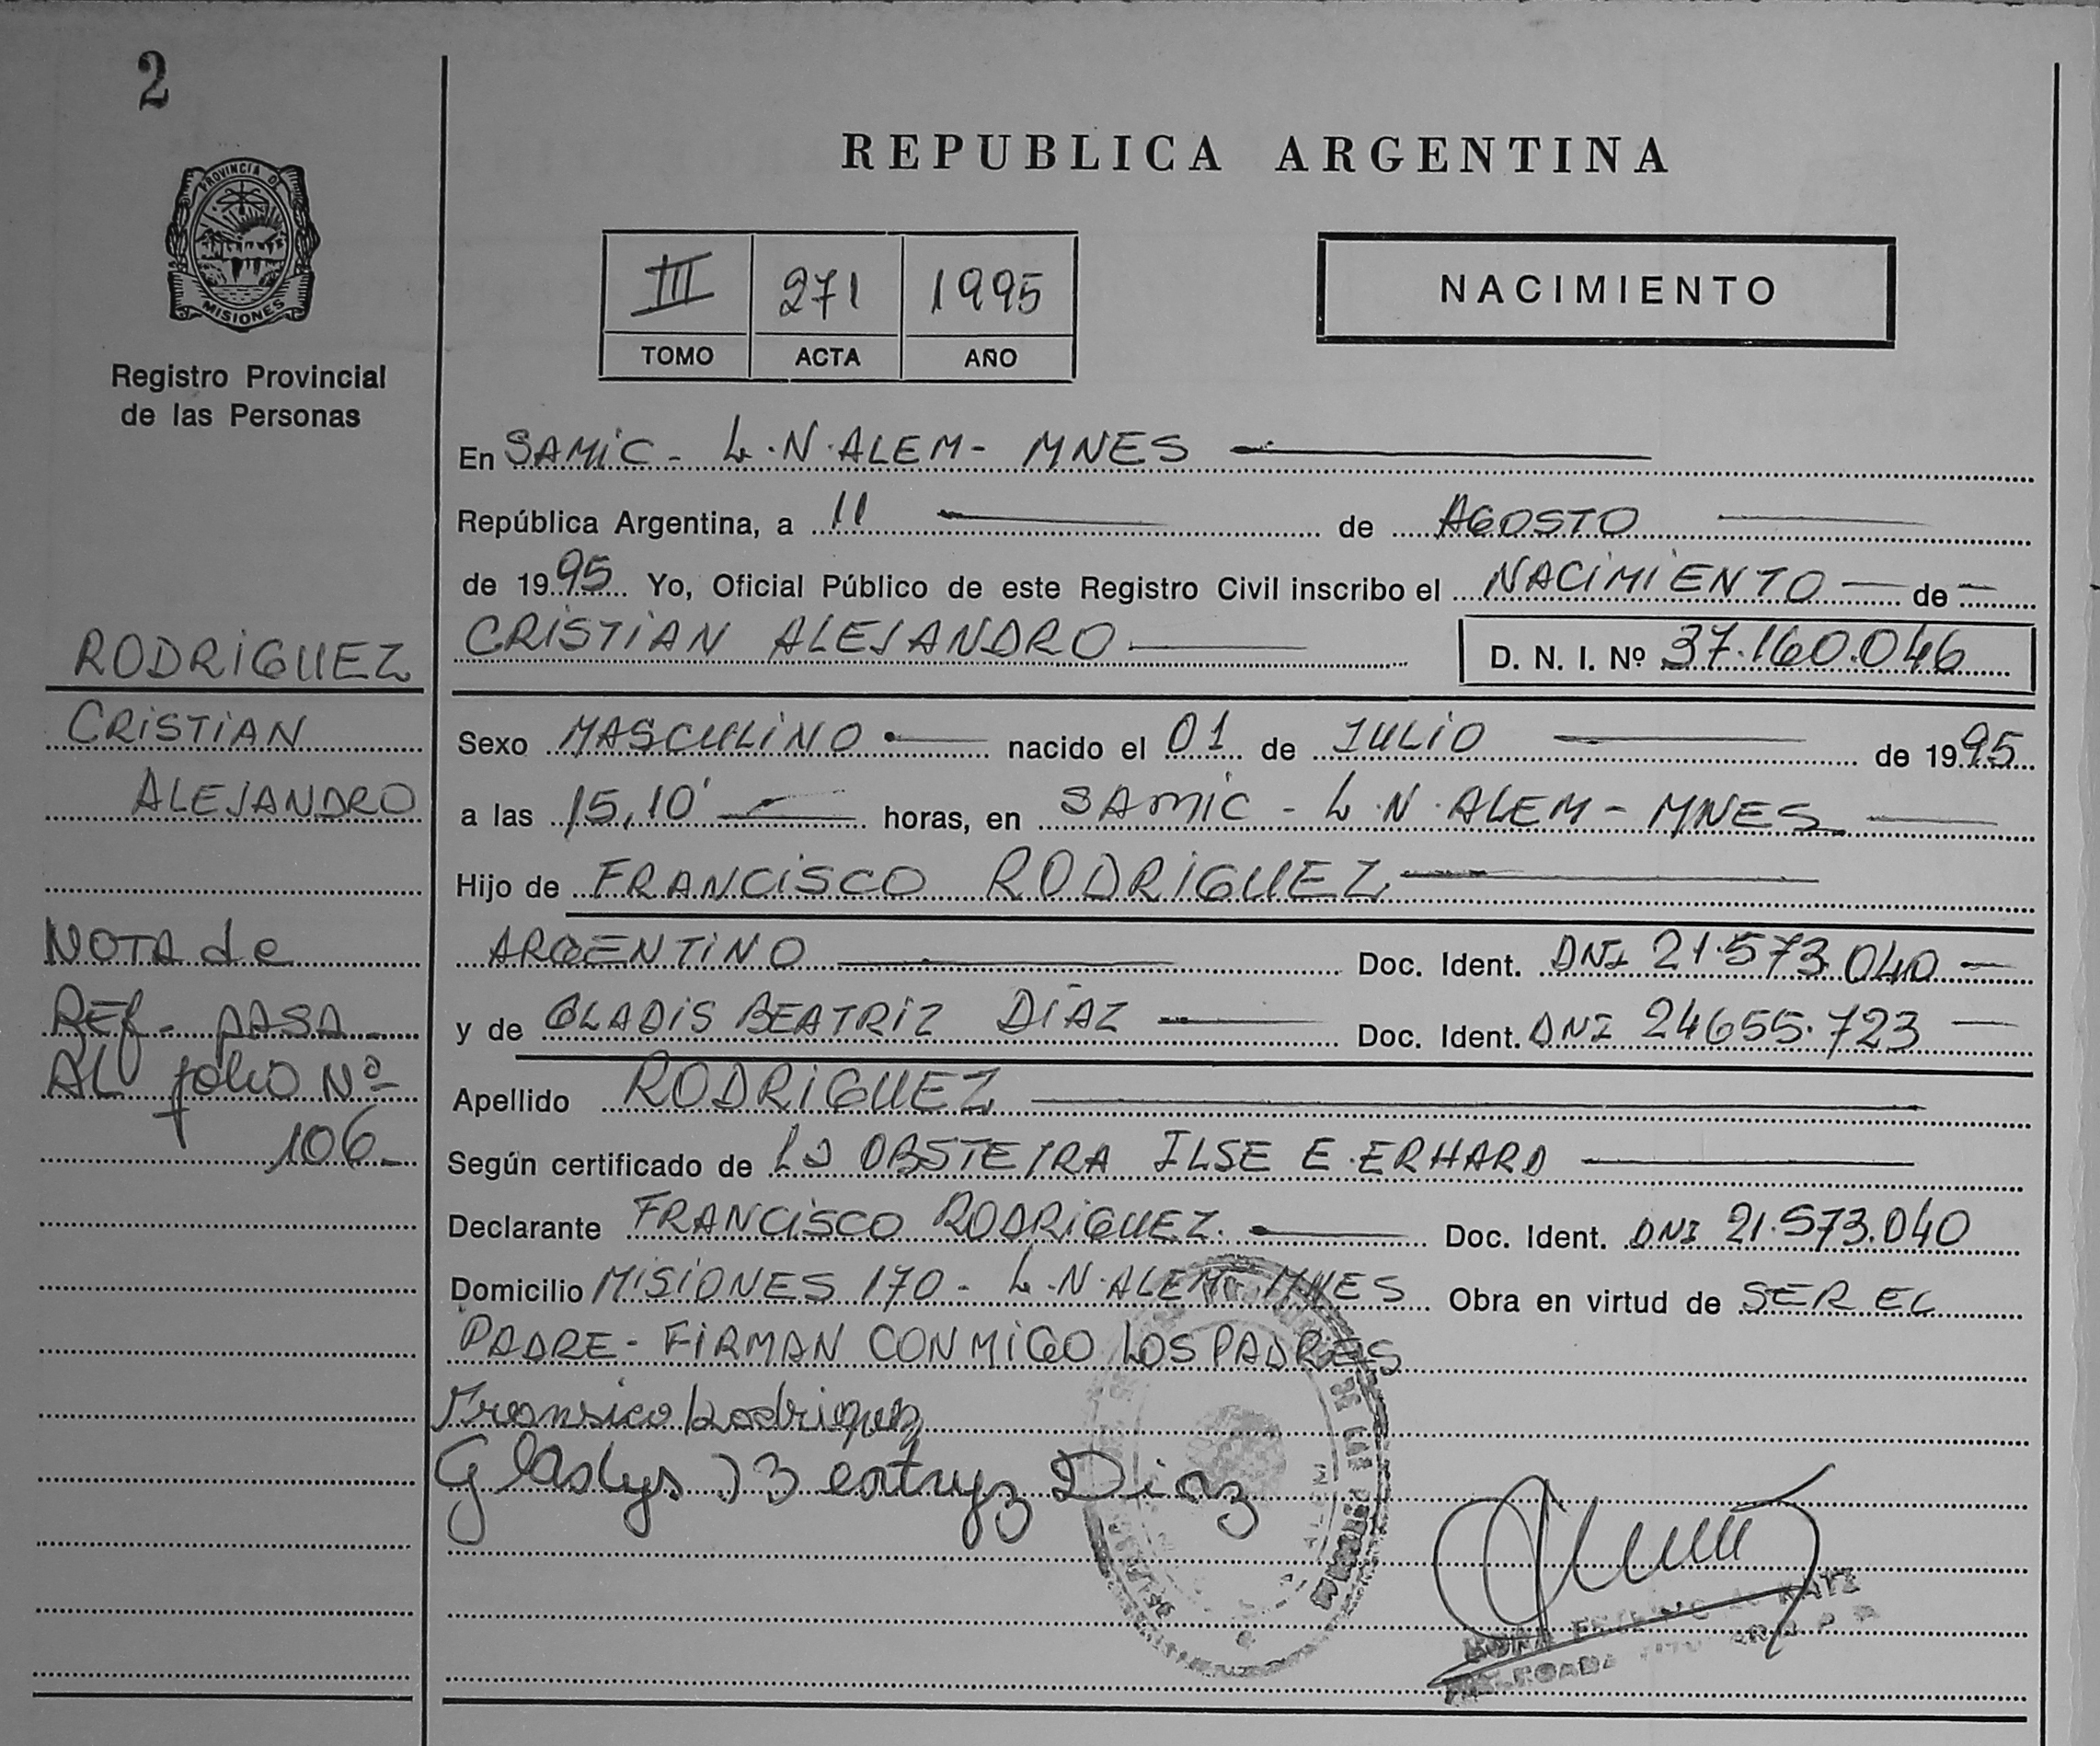 2
PROVINCIA DE
MISIONES
Registro Provincial
de las Personas
RODRIGUEZ
CRISTIAN
ALEJANDRO
NOTA de
REf. pASA
AL folio Nº
106
REPUBLICA ARGENTINA
III 271 1995
TOMO ACTA AÑO
NACIMIENTO
En SAMIC - L.N. ALEM - MNES
República Argentina, a 11 de AGOSTO
de 1995 Yo, Oficial Público de este Registro Civil inscribo el NACIMIENTO de
CRISTIAN ALEJANDRO D. N. I. Nº 37.160.046
Sexo MASCULINO nacido el 01 de JULIO de 1995
a las 15,10' horas, en SAMIC - L.N. ALEM - MNES
Hijo de FRANCISCO RODRIGUEZ
ARGENTINO Doc. Ident. DNI 21.573.040
y de GLADIS BEATRIZ DIAZ Doc. Ident. DNI 24655.723
Apellido RODRIGUEZ
Según certificado de la OBSTETRA ILSE E. ERHARD
Declarante FRANCISCO RODRIGUEZ. Doc. Ident. DNI 21.573.040
Domicilio MISIONES 170 - L.N. ALEM - MNES Obra en virtud de SER EL
PADRE - FIRMAN CONMIGO LOS PADRES
Rodriguez
Gladys Beatryz Diaz